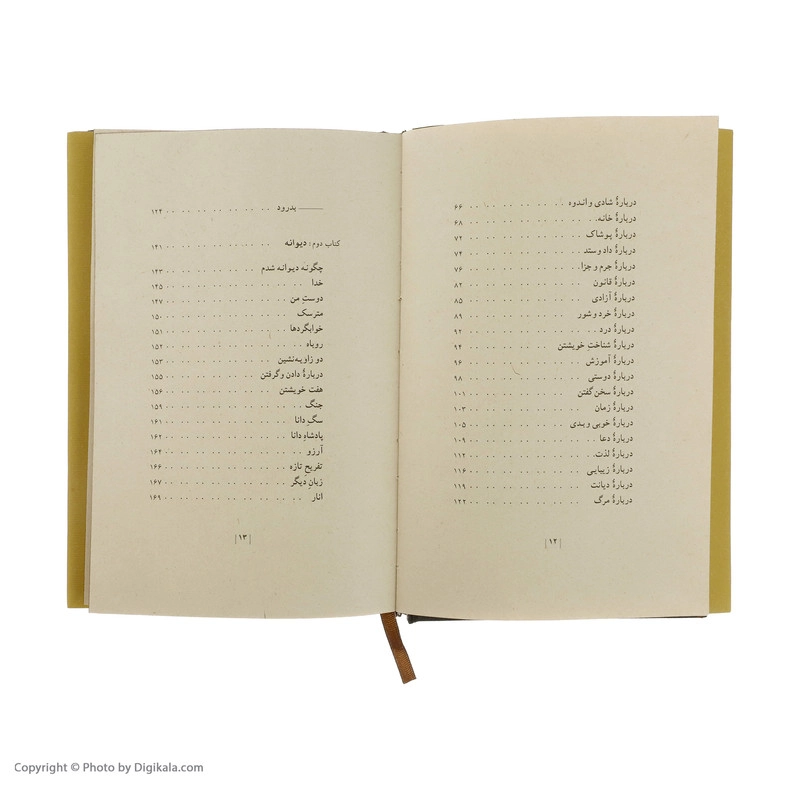 دربارهٔ شادی و اندوه . . . . . . . . . . . ۶۶
دربارهٔ خانه. . . . . . . . . . . . . ۶۸
دربارهٔ پوشاک . . . . . . . . . . . . ۷۲
دربارهٔ داد و ستد . . . . . . . . . . . ۷۴
دربارهٔ جرم و جزا. . . . . . . . . . . ۷۶
دربارهٔ قانون . . . . . . . . . . . . ۸۲
دربارهٔ آزادی . . . . . . . . . . . . ۸۵
دربارهٔ خرد و شور . . . . . . . . . . . ۸۹
دربارهٔ درد . . . . . . . . . . . . . ۹۲
دربارهٔ شناختِ خویشتن . . . . . . . . . ۹۴
دربارهٔ آموزش . . . . . . . . . . . . ۹۶
دربارهٔ دوستی . . . . . . . . . . . . ۹۸
دربارهٔ سخن گفتن . . . . . . . . . . . ۱۰۱
دربارهٔ زمان . . . . . . . . . . . . ۱۰۳
دربارهٔ خوبی و بدی . . . . . . . . . . ۱۰۵
دربارهٔ دعا . . . . . . . . . . . . . ۱۰۹
دربارهٔ لذت. . . . . . . . . . . . . ۱۱۲
دربارهٔ زیبایی . . . . . . . . . . . . ۱۱۶
دربارهٔ دیانت . . . . . . . . . . . . ۱۱۹
دربارهٔ مرگ . . . . . . . . . . . . . ۱۲۲
|۱۲|
بدرود . . . . . . . . . . . . ۱۲۴
کتاب دوم: دیوانه . . . . . . . . . . . ۱۴۱
چگونه دیوانه شدم . . . . . . . . . . . ۱۴۳
خدا . . . . . . . . . . . . . . ۱۴۵
دوستِ من . . . . . . . . . . . . . ۱۴۷
مترسک . . . . . . . . . . . . . ۱۵۰
خوابگردها . . . . . . . . . . . . ۱۵۱
روباه . . . . . . . . . . . . . . ۱۵۲
دو زاویه‌نشین . . . . . . . . . . . . ۱۵۳
دربارهٔ دادن و گرفتن . . . . . . . . . . ۱۵۵
هفت خویشتن . . . . . . . . . . . . ۱۵۶
جنگ . . . . . . . . . . . . . . ۱۵۹
سگِ دانا . . . . . . . . . . . . . ۱۶۱
پادشاهِ دانا . . . . . . . . . . . . ۱۶۲
آرزو . . . . . . . . . . . . . . ۱۶۴
تفریحِ تازه . . . . . . . . . . . . ۱۶۶
زبانِ دیگر . . . . . . . . . . . . ۱۶۷
انار . . . . . . . . . . . . . . ۱۶۹
|۱۳|
Copyright © Photo by Digikala.com